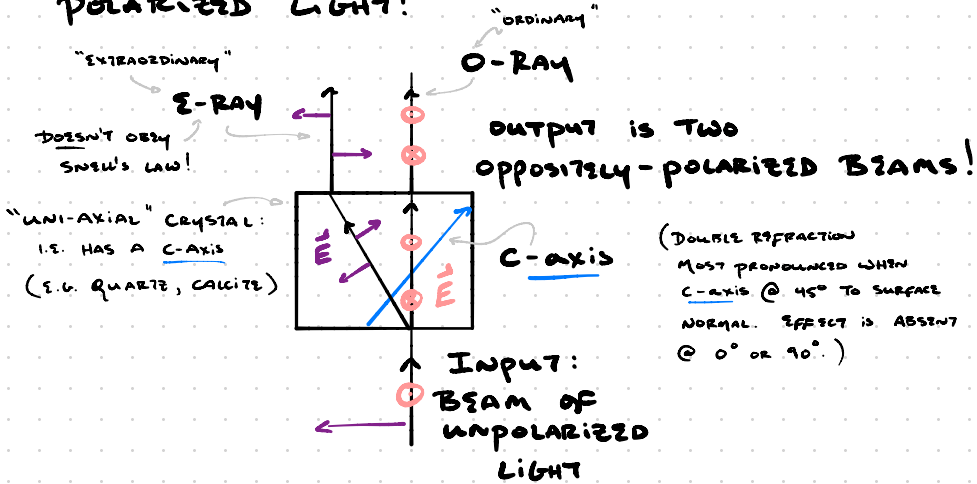 POLARIZED LIGHT!
"ORDINARY"
"EXTRAORDINARY"
O-RAY
E-RAY
DOESN'T OBEY
SNELL'S LAW!
OUTPUT IS TWO
OPPOSITELY-POLARIZED BEAMS!
"UNI-AXIAL" CRYSTAL:
I.E. HAS A C-AXIS
(E.G. QUARTZ, CALCITE)
E
E
C-axis
(DOUBLE REFRACTION
MOST PRONOUNCED WHEN
C-axis @ 45° TO SURFACE
NORMAL. EFFECT IS ABSENT
@ 0° OR 90°.)
INPUT:
BEAM OF
UNPOLARIZED
LIGHT